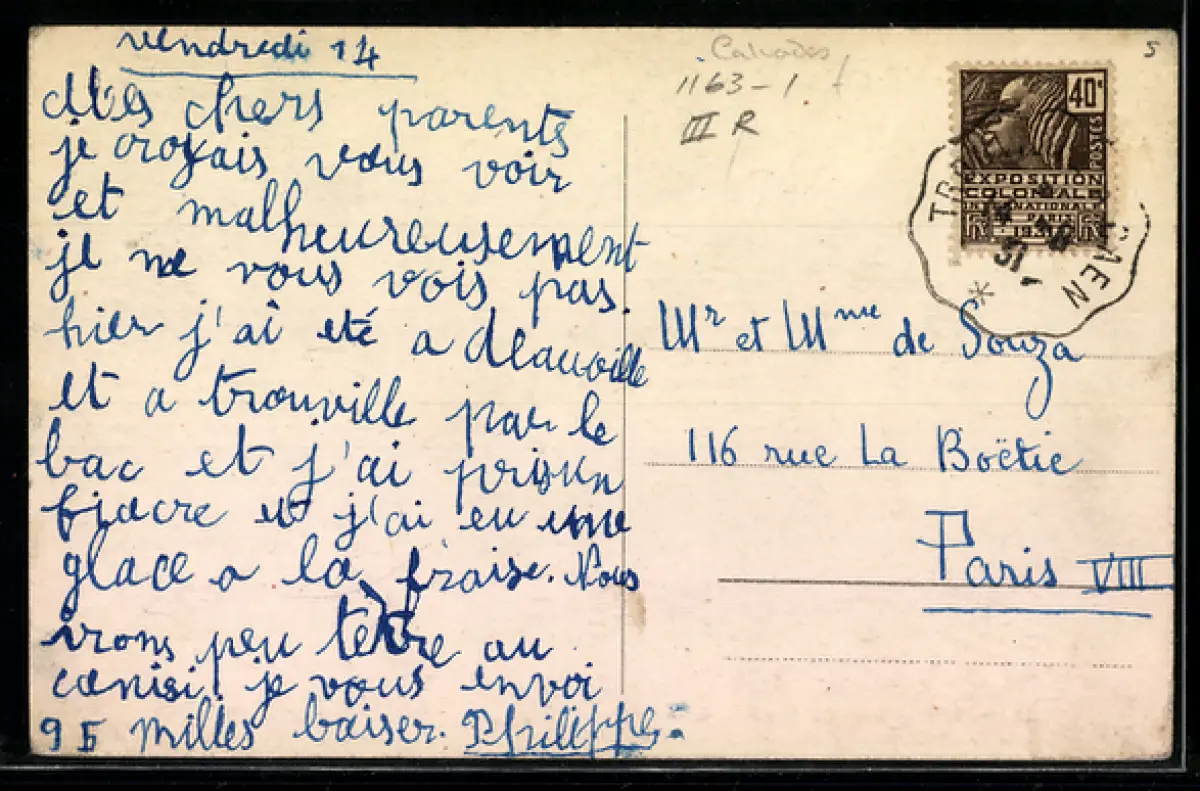 vendredi 14
Mes chers parents
je croyais vous voir
et malheureusement
je ne vous vois pas.
hier j'ai eté a deauville
et a trouville par le
bac et j'ai pris un
fiacre et j'ai eu une
glace a la fraise. Nous
irons peu tetre au
canisi. je vous envoi
95 milles baiser. Philippe.
Calvados
1163-1
III R
5
40c
POSTES
EXPOSITION
COLONIALE
INTERNATIONALE
PARIS
1931
CAEN
31
Mr et Mme de Souza
116 rue La Boëtie
Paris VIII